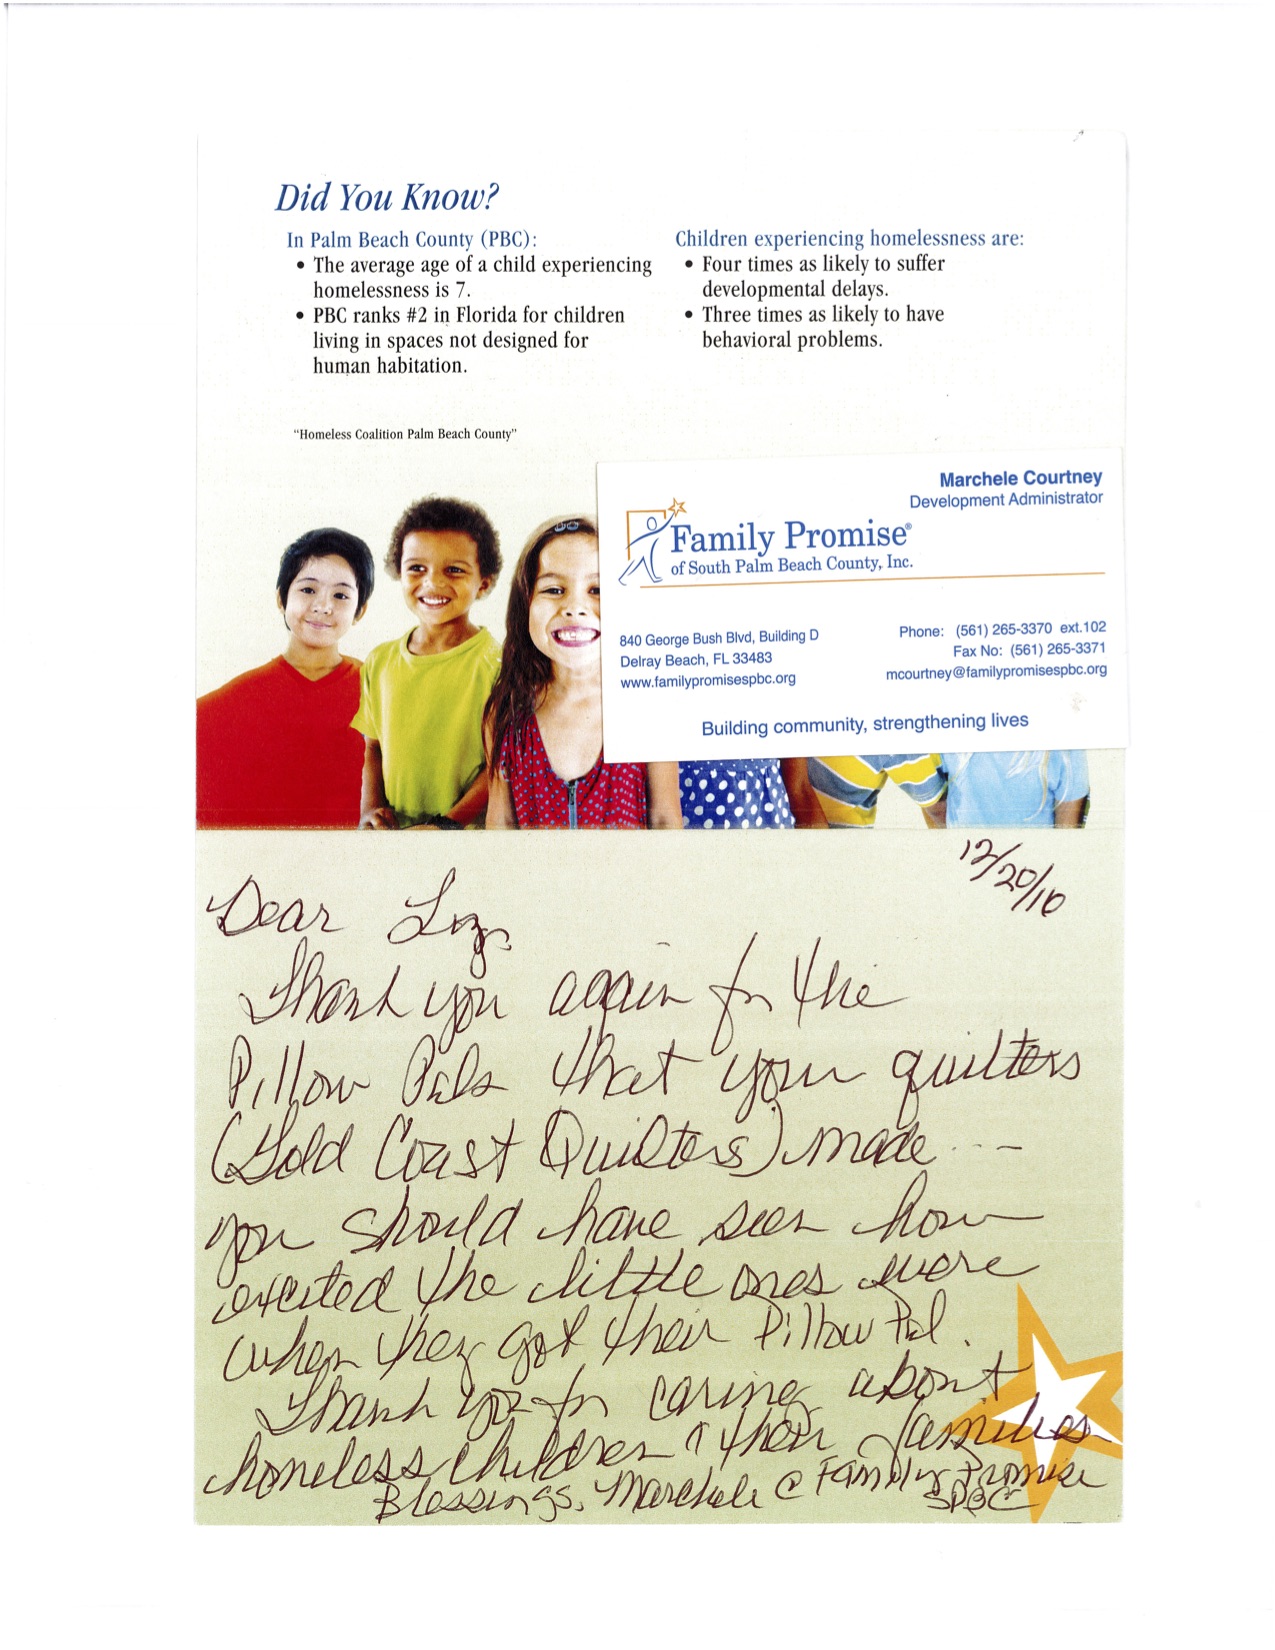 Did You Know?
In Palm Beach County (PBC):
• The average age of a child experiencing
homelessness is 7.
• PBC ranks #2 in Florida for children
living in spaces not designed for
human habitation.
Children experiencing homelessness are:
• Four times as likely to suffer
developmental delays.
• Three times as likely to have
behavioral problems.
"Homeless Coalition Palm Beach County"
Marchele Courtney
Development Administrator
Family Promise®
of South Palm Beach County, Inc.
840 George Bush Blvd, Building D
Delray Beach, FL 33483
www.familypromisespbc.org
Phone: (561) 265-3370 ext.102
Fax No: (561) 265-3371
mcourtney@familypromisespbc.org
Building community, strengthening lives
12/20/16
Dear Liz,
Thank you again for the
Pillow Pals that your quilters
(Gold Coast Quilters) made ---
you should have seen how
excited the little ones were
when they got their Pillow Pal.
Thank you for caring about
homeless children & their families
Blessings, Marchele @ Family Promise
SPBC